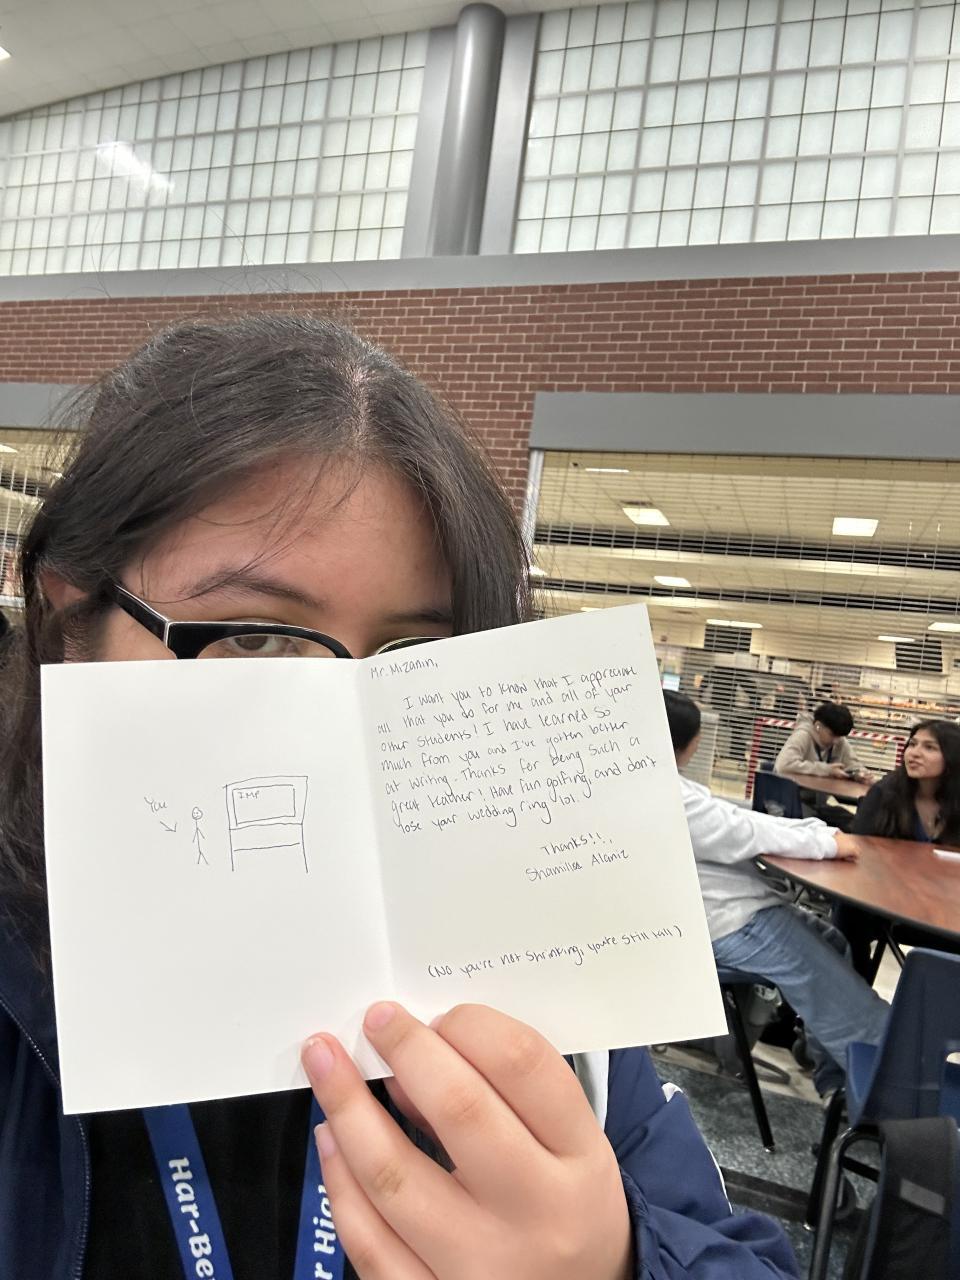 Mr. Mizanin,
I want you to know that I appreciate
all that you do for me and all of your
other students! I have learned so
much from you and I've gotten better
at writing. Thanks for being such a
great teacher! Have fun golfing, and don't
lose your wedding ring lol.
Thanks!!!,
Shamilla Alaniz
(No you're not shrinking, you're still tall)
You
IMP
Har-Ber
r High